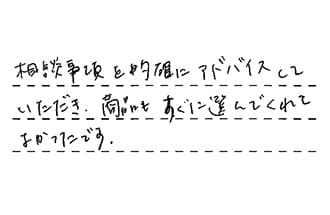 相談事項を的確にアドバイスして
いただき、商品もすぐに選んでくれて
よかったです。